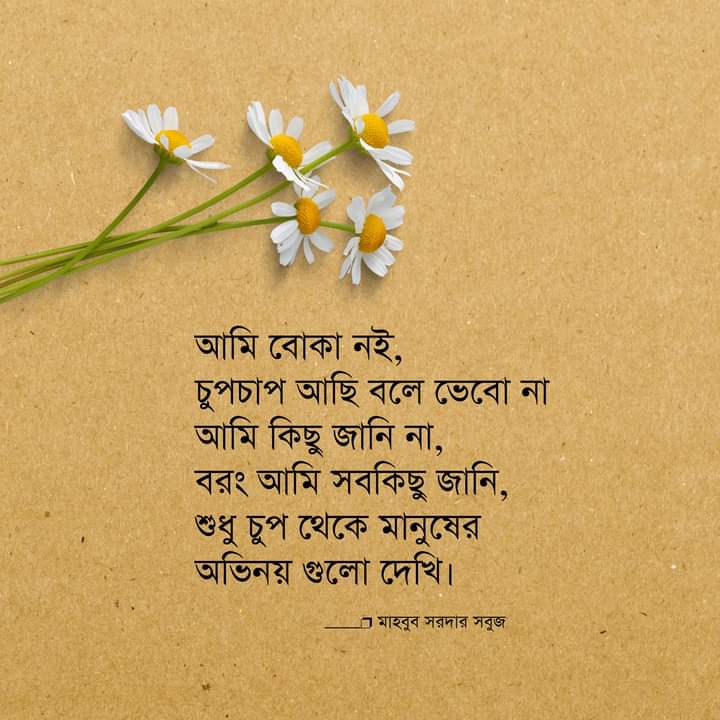 আমি বোকা নই,
চুপচাপ আছি বলে ভেবো না
আমি কিছু জানি না,
বরং আমি সবকিছু জানি,
শুধু চুপ থেকে মানুষের
অভিনয় গুলো দেখি।
____❒ মাহবুব সরদার সবুজ